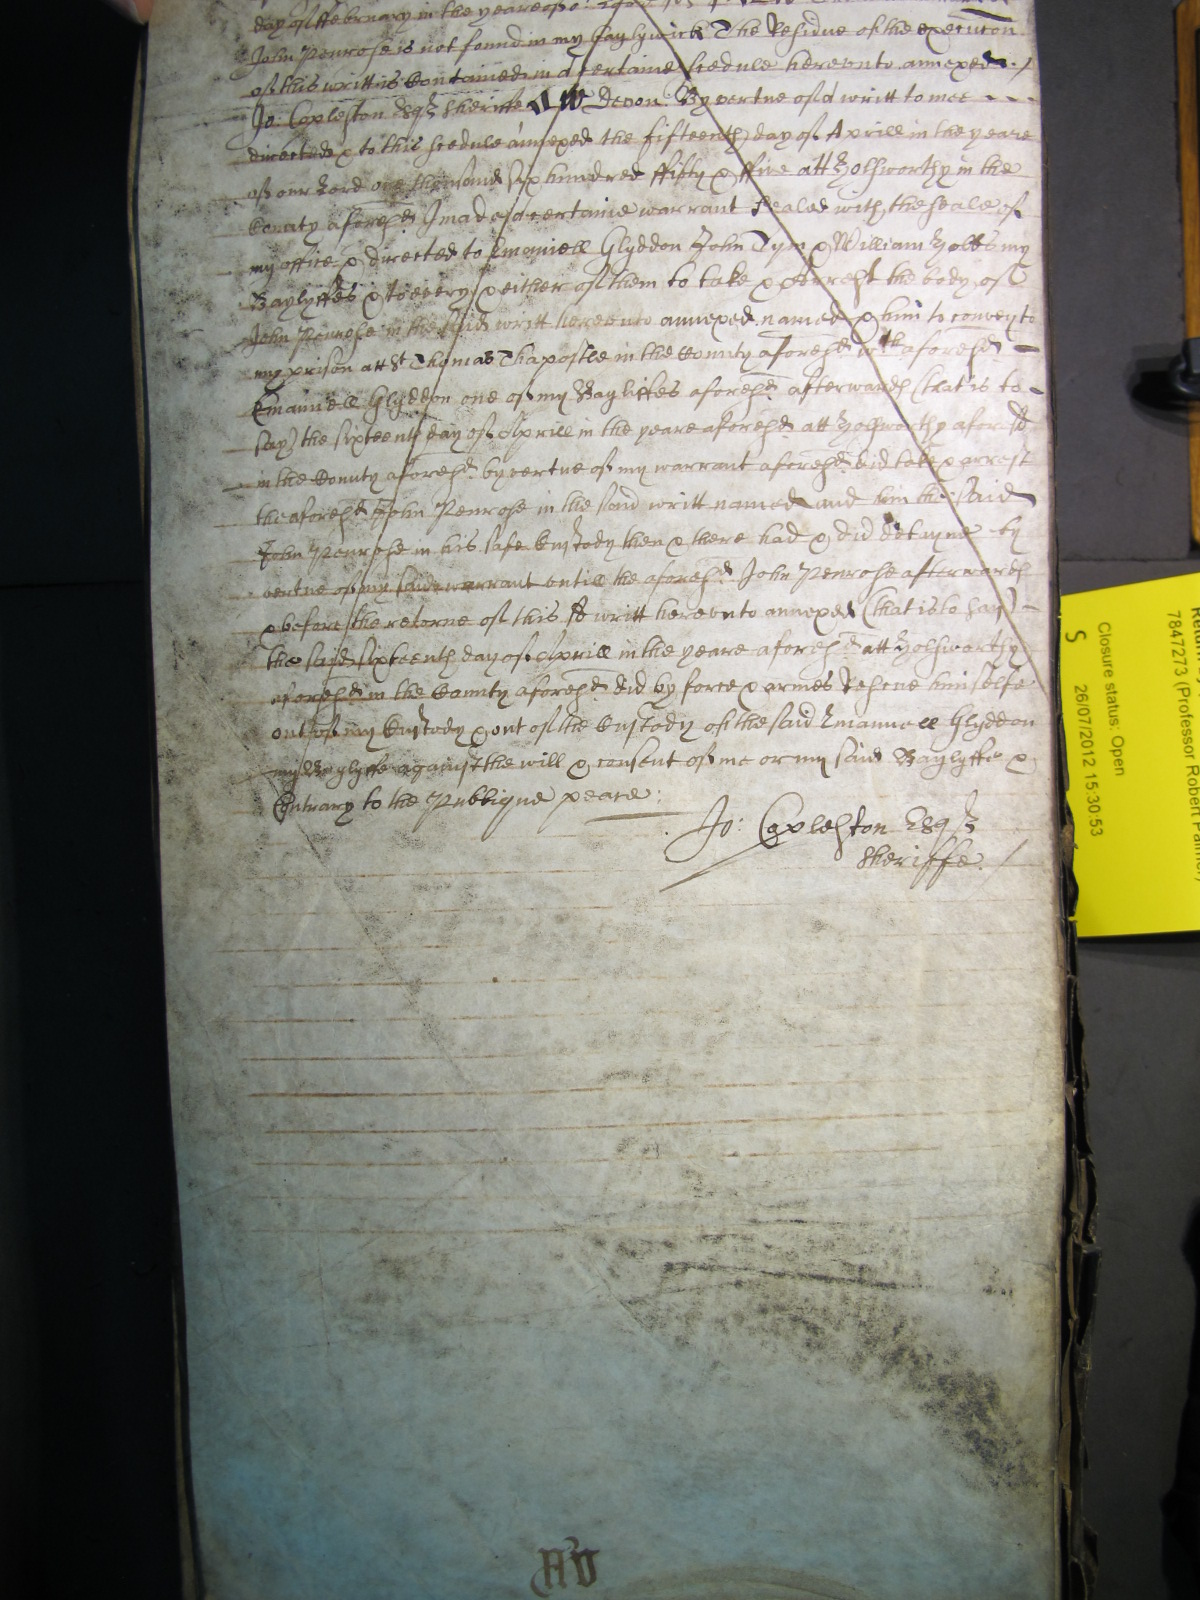 day of ffebruary in the yeare
John Penrose is not found in my Baylywick The Residue of the execucon
of this writt is Contained in a Certaine scedule herevnto annexed /
Jo: Copleston Esqr Sheriffe Devon By vertue of a writt to mee
directed & to this scedule annexed the fifteenth day of Aprill in the yeare
of our Lord one thousand Six hundred ffifty & ffive att Holsworthy in the
County aforesd. I made a certaine warrant Sealed with the Seale of
my office & directed to Emanuell Glyddon John Tym & William Holbs my
Baylyffes & to every & either of them to take & arrest the body of
John Penrose in the said writt herevnto annexed named & him to convey to
my prison att St Thomas Thapostle in the County aforesd. wch aforesd.
Emanuell Glyddon one of my Bayliffes aforesd. afterwards (that is to
say) the sixteenth day of Aprill in the yeare aforesd. att Holsworthy aforesd
in the County aforesd. by vertue of my warrant aforesd. did take & arrest
the aforesd. John Penrose in the said writt named and him the said
John Penrose in his safe Custody then & there had & did detayne by
vertue of my said warrant vntill the aforesd. John Penrose afterwards
& before the retorne of this sd writt herevnto annexed (that is to say)
the said sixteenth day of Aprill in the yeare aforesd. att Holsworthy
aforesd. in the County aforesd. did by force & armes Rescue himselfe
out of my Custody & out of the Custody of the said Emanuell Glyddon
my Baylyffe against the will & consent of me or my said Baylyffe &
Contrary to the Publique peace:
Jo: Copleston Esqr
Sheriffe /
7847273 (Professor Robert Palmer)
Closure status: Open
S 26/07/2012 15:30:53